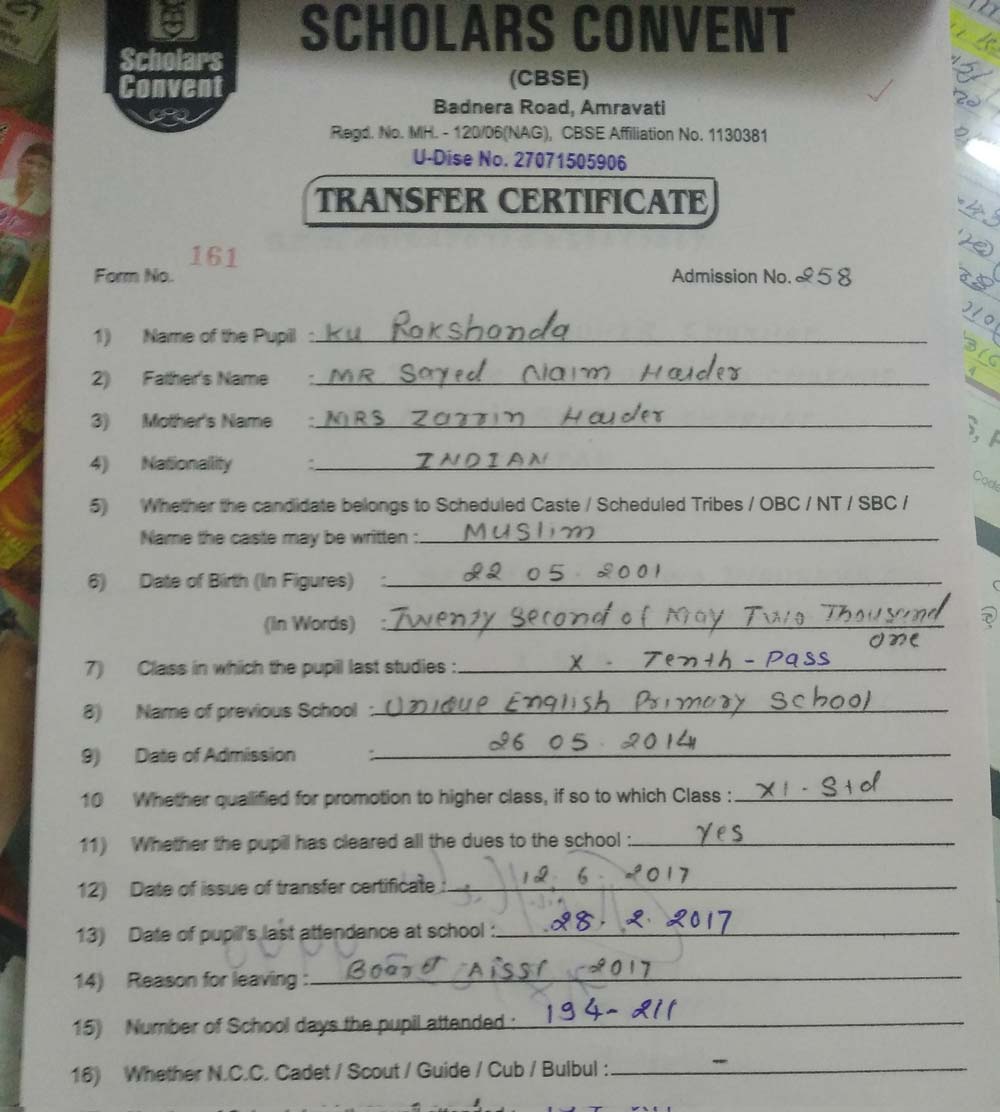 Scholars
Convent
SCHOLARS CONVENT
(CBSE)
Badnera Road, Amravati
Regd. No. MH. - 120/06(NAG), CBSE Affiliation No. 1130381
U-Dise No. 27071505906
TRANSFER CERTIFICATE
Form No. 161 Admission No. 258
1) Name of the Pupil : Ku Rakshanda
2) Father's Name : MR Sayed Naim Haider
3) Mother's Name : MRS Zarrin Haider
4) Nationality : INDIAN
5) Whether the candidate belongs to Scheduled Caste / Scheduled Tribes / OBC / NT / SBC /
Name the caste may be written : Muslim
6) Date of Birth (In Figures) : 22 05 . 2001
(In Words) : Twenty Second of May Two Thousand
one
7) Class in which the pupil last studies : X - Tenth - Pass
8) Name of previous School : Unique English Primary School
9) Date of Admission : 26 05 . 2014
10 Whether qualified for promotion to higher class, if so to which Class : XI - Std
11) Whether the pupil has cleared all the dues to the school : Yes
12) Date of issue of transfer certificate : 12. 6. 2017
13) Date of pupil's last attendance at school : 28. 2. 2017
14) Reason for leaving : Board 2017
15) Number of School days the pupil attended : 194 - 211
16) Whether N.C.C. Cadet / Scout / Guide / Cub / Bulbul : -